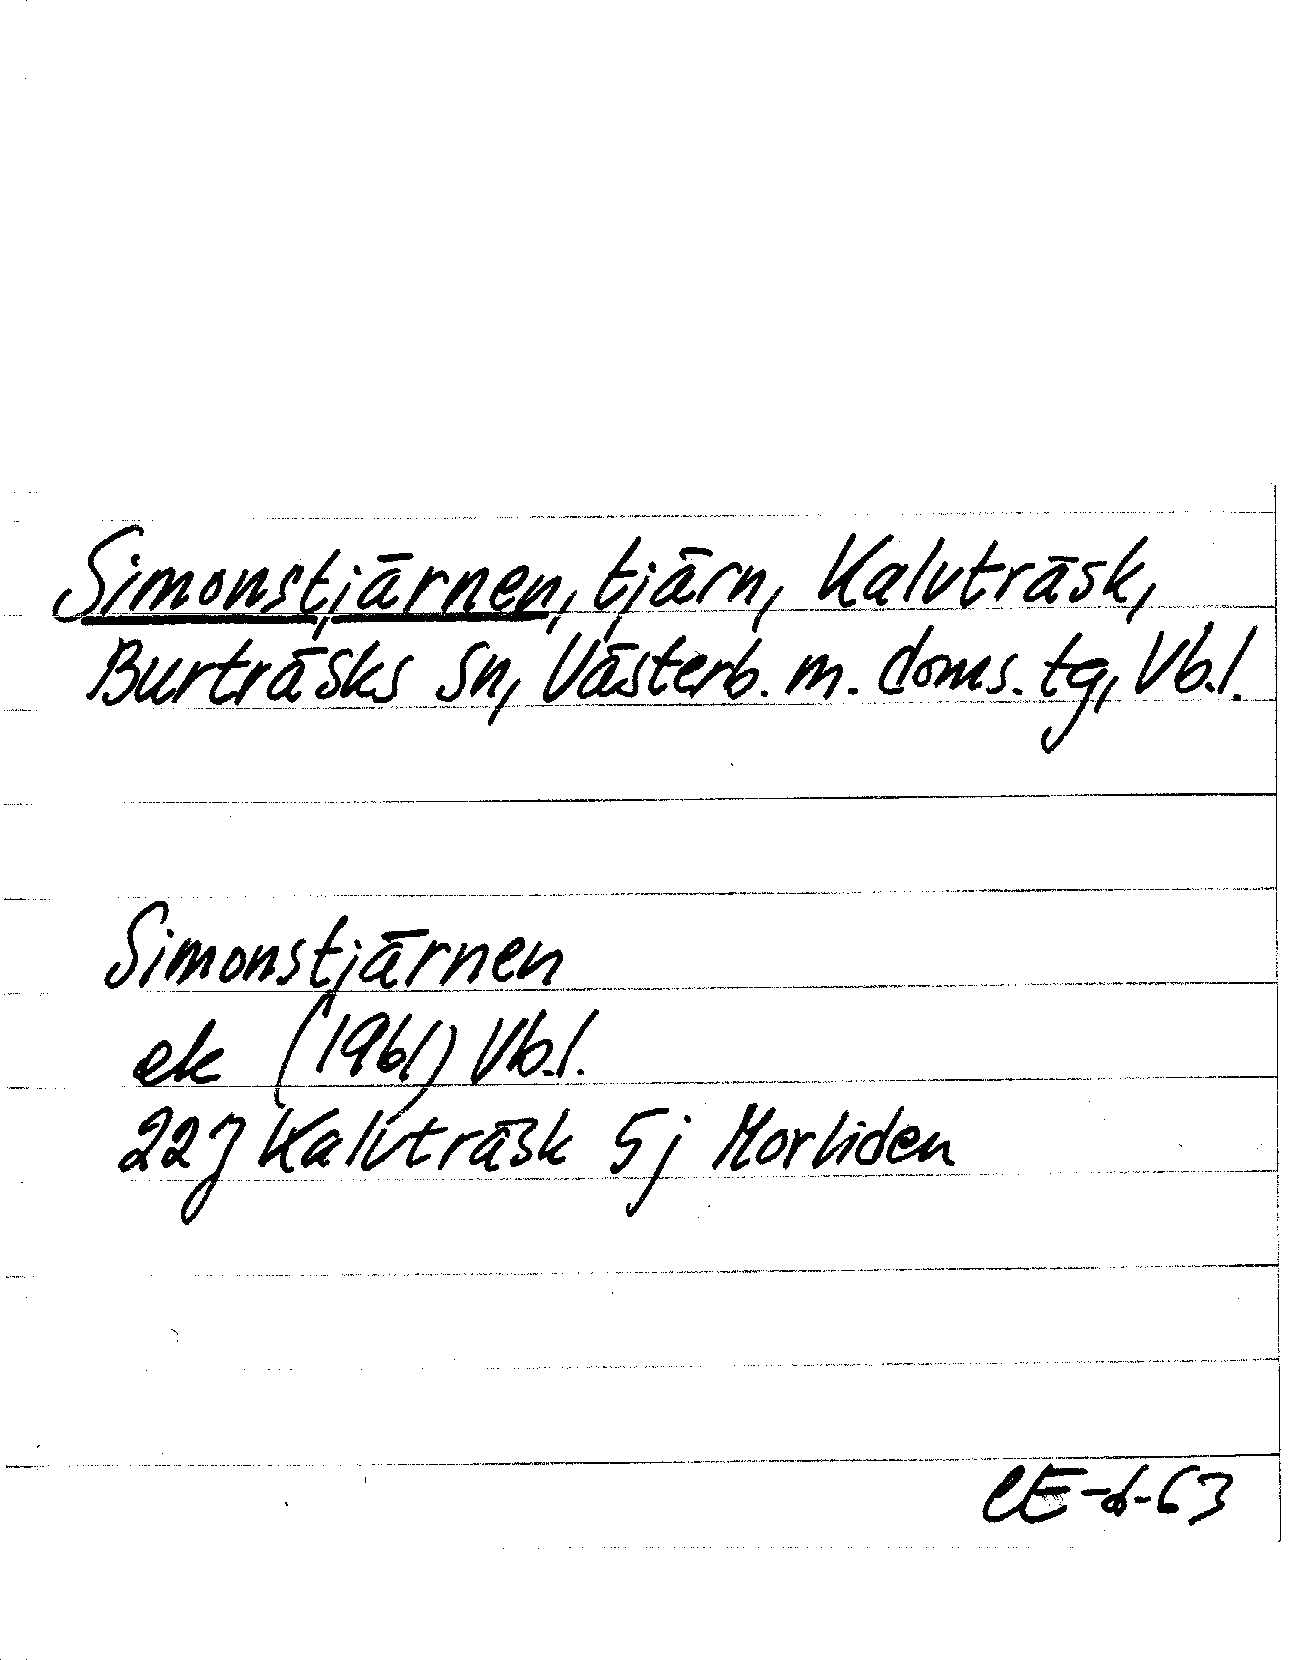 Simonstjärnen, tjärn, Kalvträsk,
Burträsks sn, Västerb. m. doms. tg, Vb.l.
Simonstjärnen
ek (1961) Vb.l.
22J Kalvträsk 5j Morliden
CE-d-63